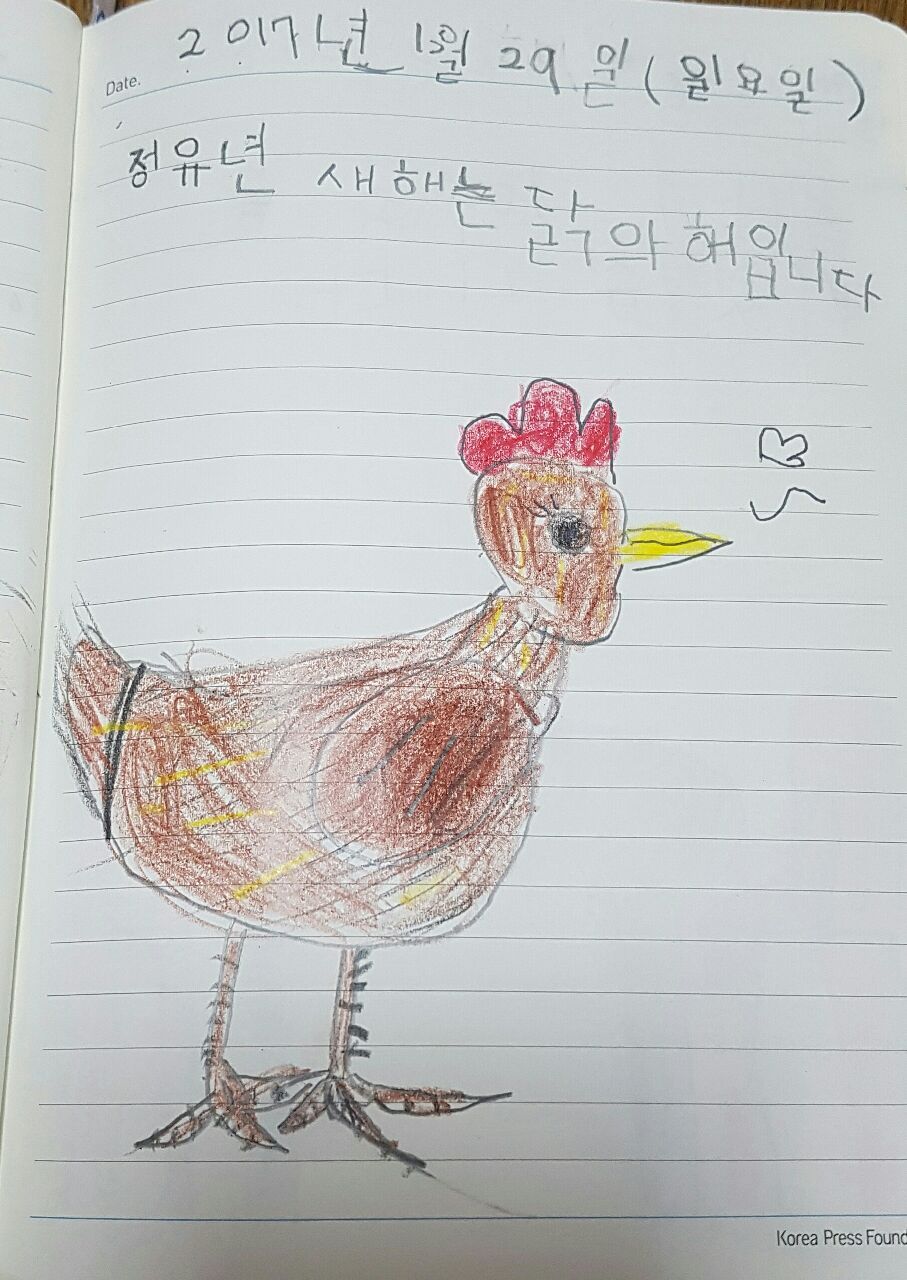 2017년 1월 29일 (월요일)
Date.
정유년 새해는 닭의 해입니다
Korea Press Found